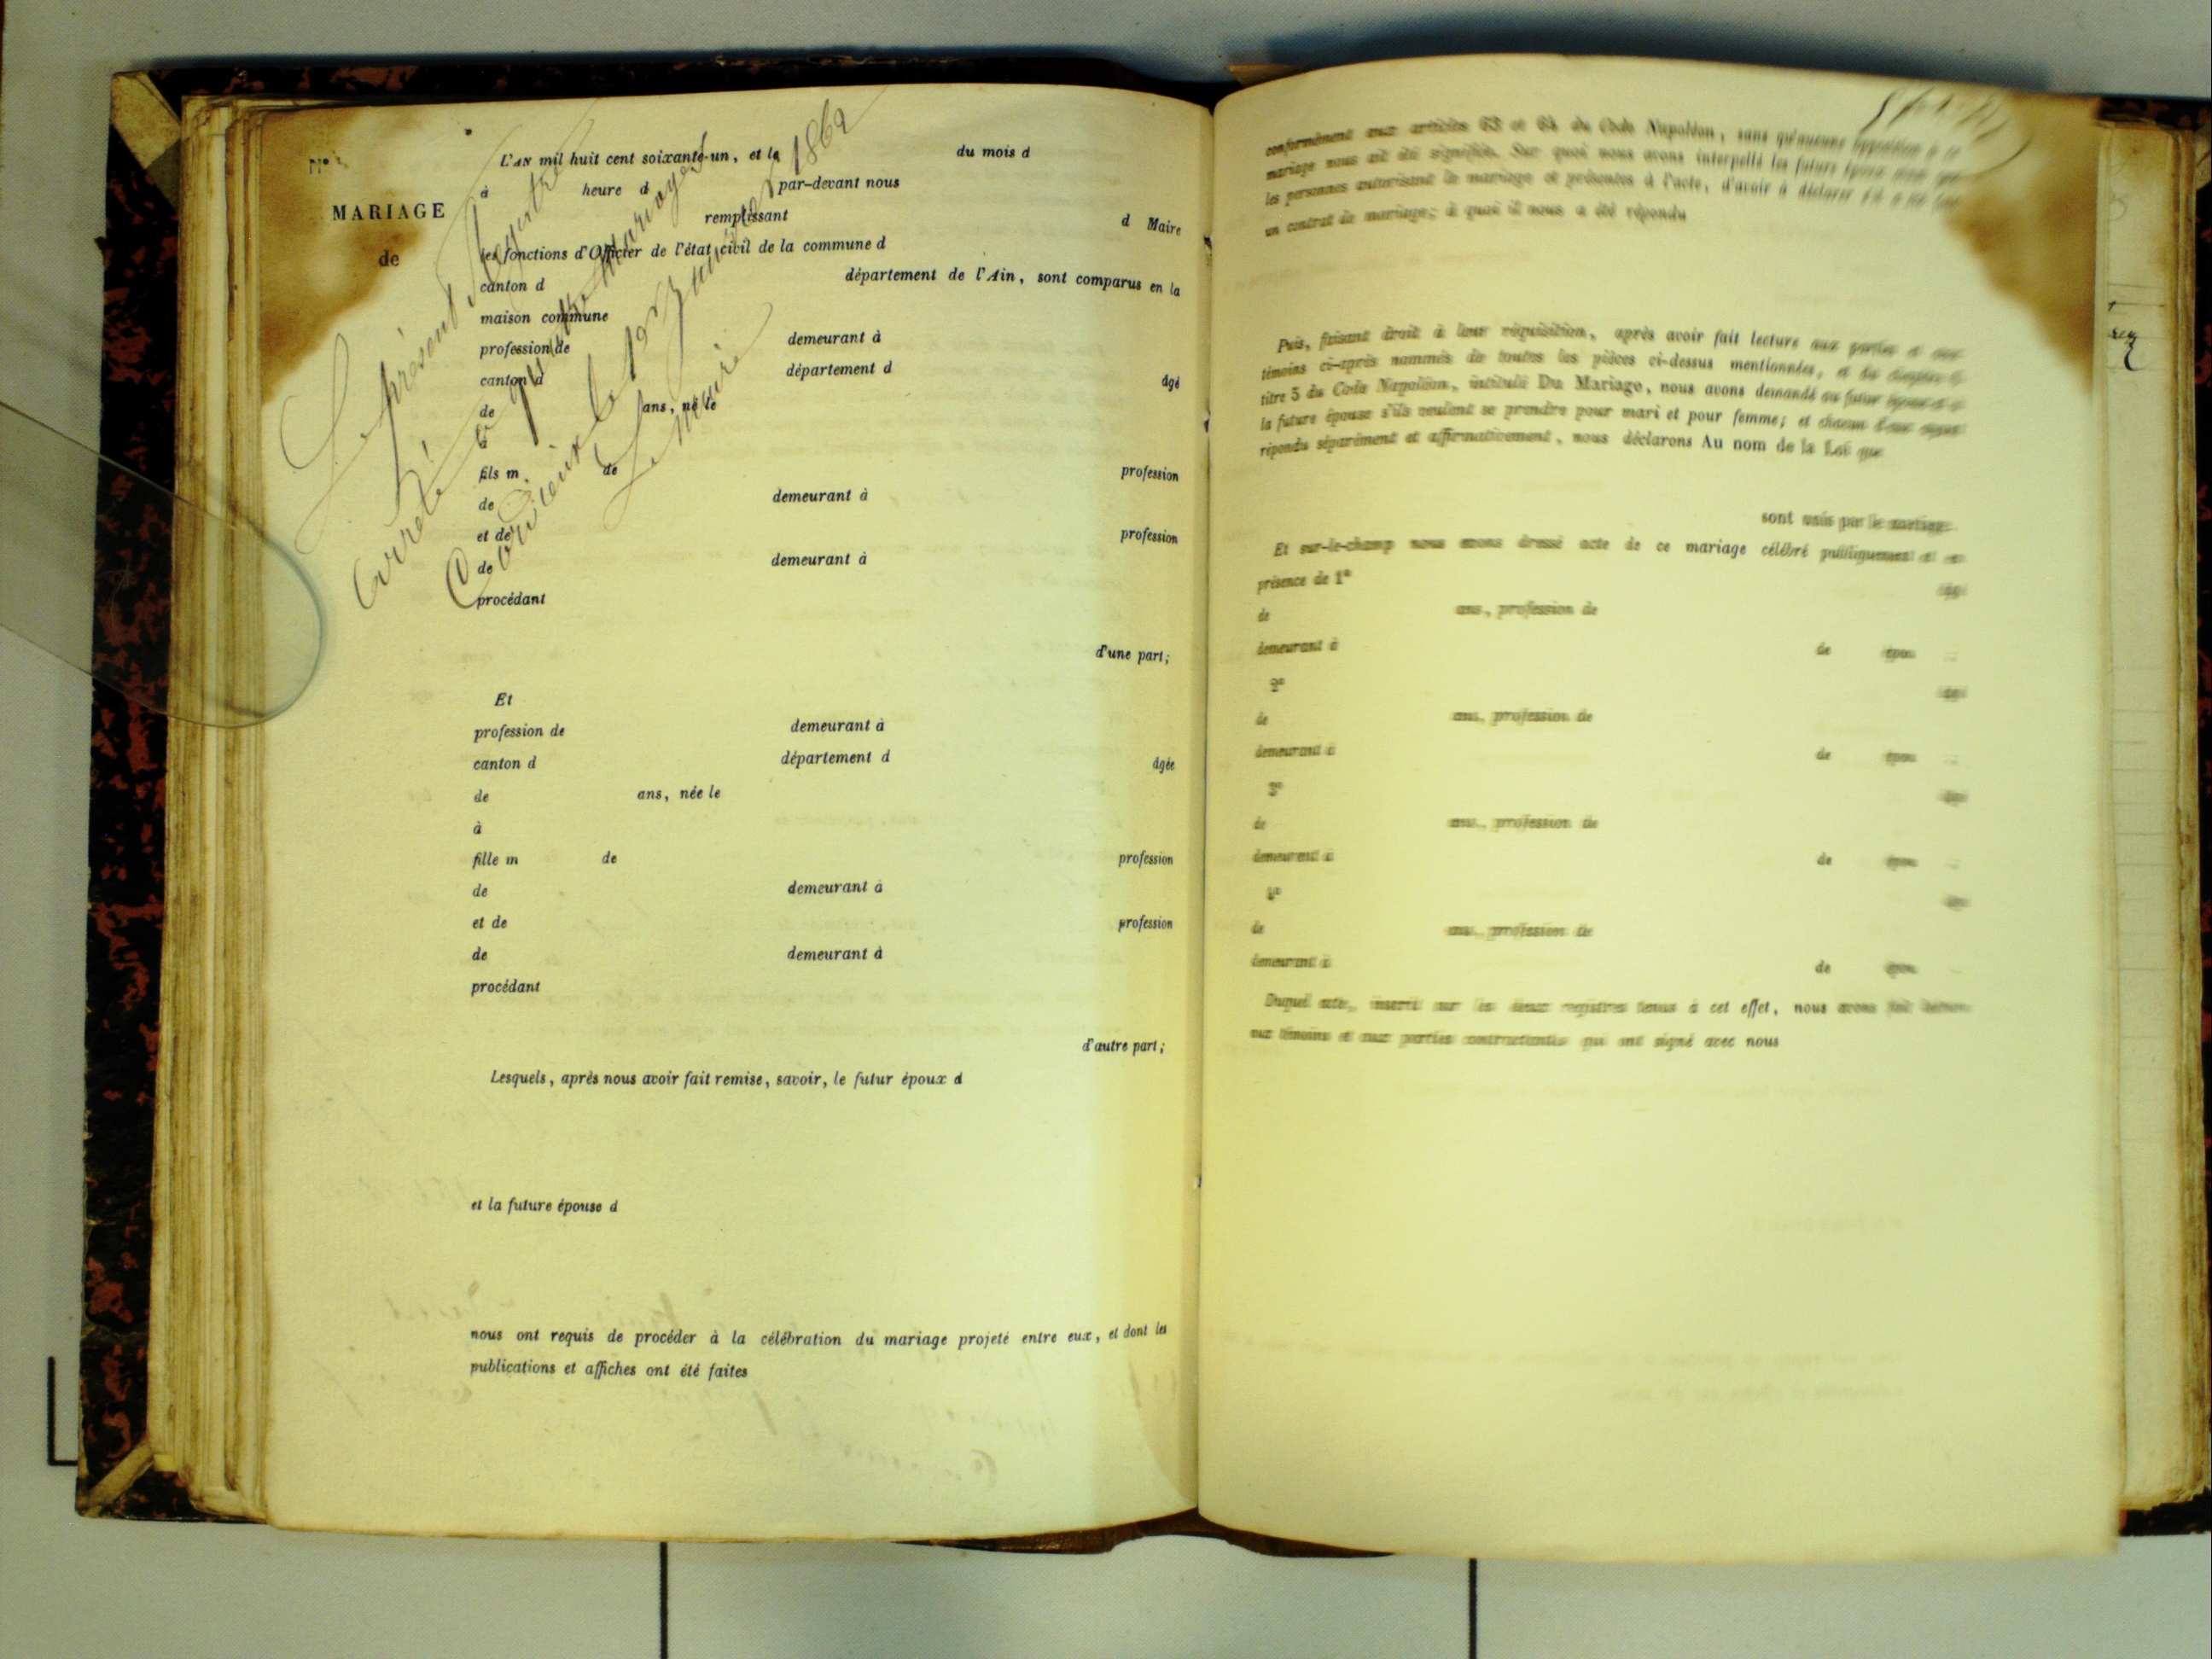 N°
MARIAGE
de
Le présent Registre
arrêté à quatre Mariages
Cordieux le 1er Janvier 1862
Le Maire
L'AN mil huit cent soixante-un, et le du mois d
à heure d par-devant nous
remplissant d Maire
les fonctions d'Officier de l'état civil de la commune d
canton d département de l'Ain, sont comparus en la
maison commune
profession de demeurant à
canton d département d âgé
de ans, né le
à
fils m de profession
de demeurant à
et de profession
de demeurant à
procédant
d'une part;
Et
profession de demeurant à
canton d département d âgée
de ans, née le
à
fille m de profession
de demeurant à
et de profession
de demeurant à
procédant
d'autre part;
Lesquels, après nous avoir fait remise, savoir, le futur époux d
et la future épouse d
nous ont requis de procéder à la célébration du mariage projeté entre eux, et dont les
publications et affiches ont été faites
conformément aux articles 63 et 64 du Code Napoléon, sans qu'aucune opposition à ce
mariage nous ait été signifiée. Sur quoi nous avons interpellé les futurs époux
les personnes autorisant le mariage et présentes à l'acte, d'avoir à déclarer s'il a été fait
un contrat de mariage; à quoi il nous a été répondu
Puis, faisant droit à leur réquisition, après avoir fait lecture aux parties et aux
témoins ci-après nommés de toutes les pièces ci-dessus mentionnées, et du chapitre 6
titre 5 du Code Napoléon, intitulé Du Mariage, nous avons demandé au futur époux et à
la future épouse s'ils veulent se prendre pour mari et pour femme; et chacun d'eux ayant
répondu séparément et affirmativement, nous déclarons Au nom de la Loi que
sont unis par le mariage.
Et sur-le-champ nous avons dressé acte de ce mariage célébré publiquement et en
présence de 1° âgé
de ans, profession de
demeurant à de époux
2° âgé
de ans, profession de
demeurant à de époux
3° âgé
de ans, profession de
demeurant à de époux
4° âgé
de ans, profession de
demeurant à de époux
Duquel acte, inscrit sur les deux registres tenus à cet effet, nous avons fait lecture
aux témoins et aux parties contractantes qui ont signé avec nous